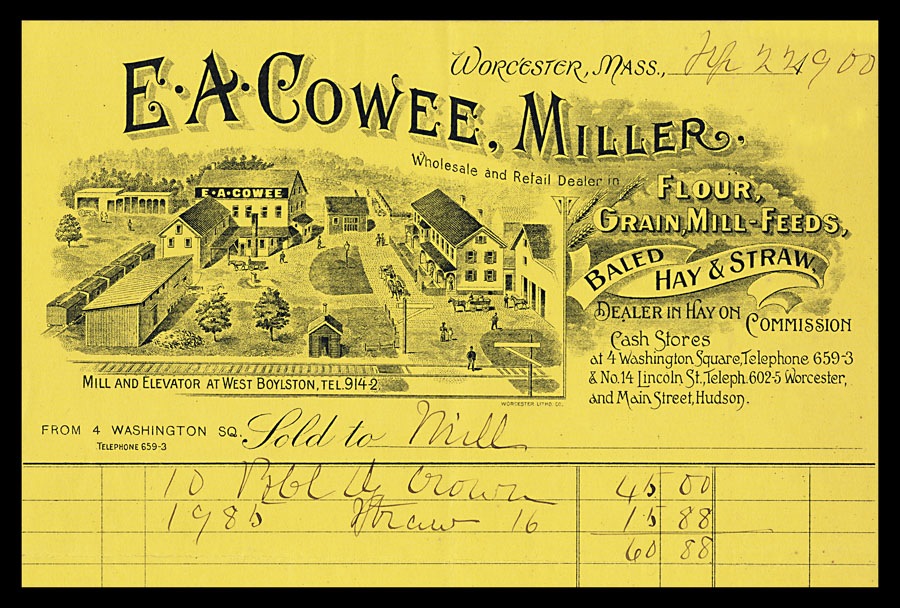 WORCESTER, MASS., 22 1900
E. A. COWEE, MILLER.
Wholesale and Retail Dealer in
FLOUR,
GRAIN, MILL-FEEDS,
BALED HAY & STRAW.
DEALER IN HAY ON COMMISSION
Cash Stores
at 4 Washington Square, Telephone 659-3
& No. 14 Lincoln St., Teleph. 602-5 Worcester,
and Main Street, Hudson.
E·A·COWEE
MILL AND ELEVATOR AT WEST BOYLSTON, TEL. 914-2
WORCESTER LITHO. CO.
FROM 4 WASHINGTON SQ. Sold to Mill
TELEPHONE 659-3
10 Bbl Crown 45 00
1985 Straw 16 15 88
60 88